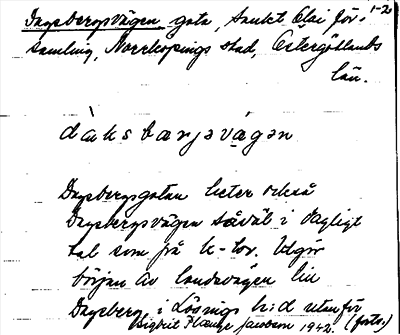 Dagsbergsvägen gata, Sankt Olai för- 1-2
samling, Norrköpings stad, Östergötlands
län.
dàksbærjəvägən
Dagsbergsgatan heter också
Dagsbergsvägen såväl i dagligt
tal som på k-tor. Utgör
början av landsvägen till
Dagsberg i Lösings h:d utanför
Jacobson 1942. (forts.)